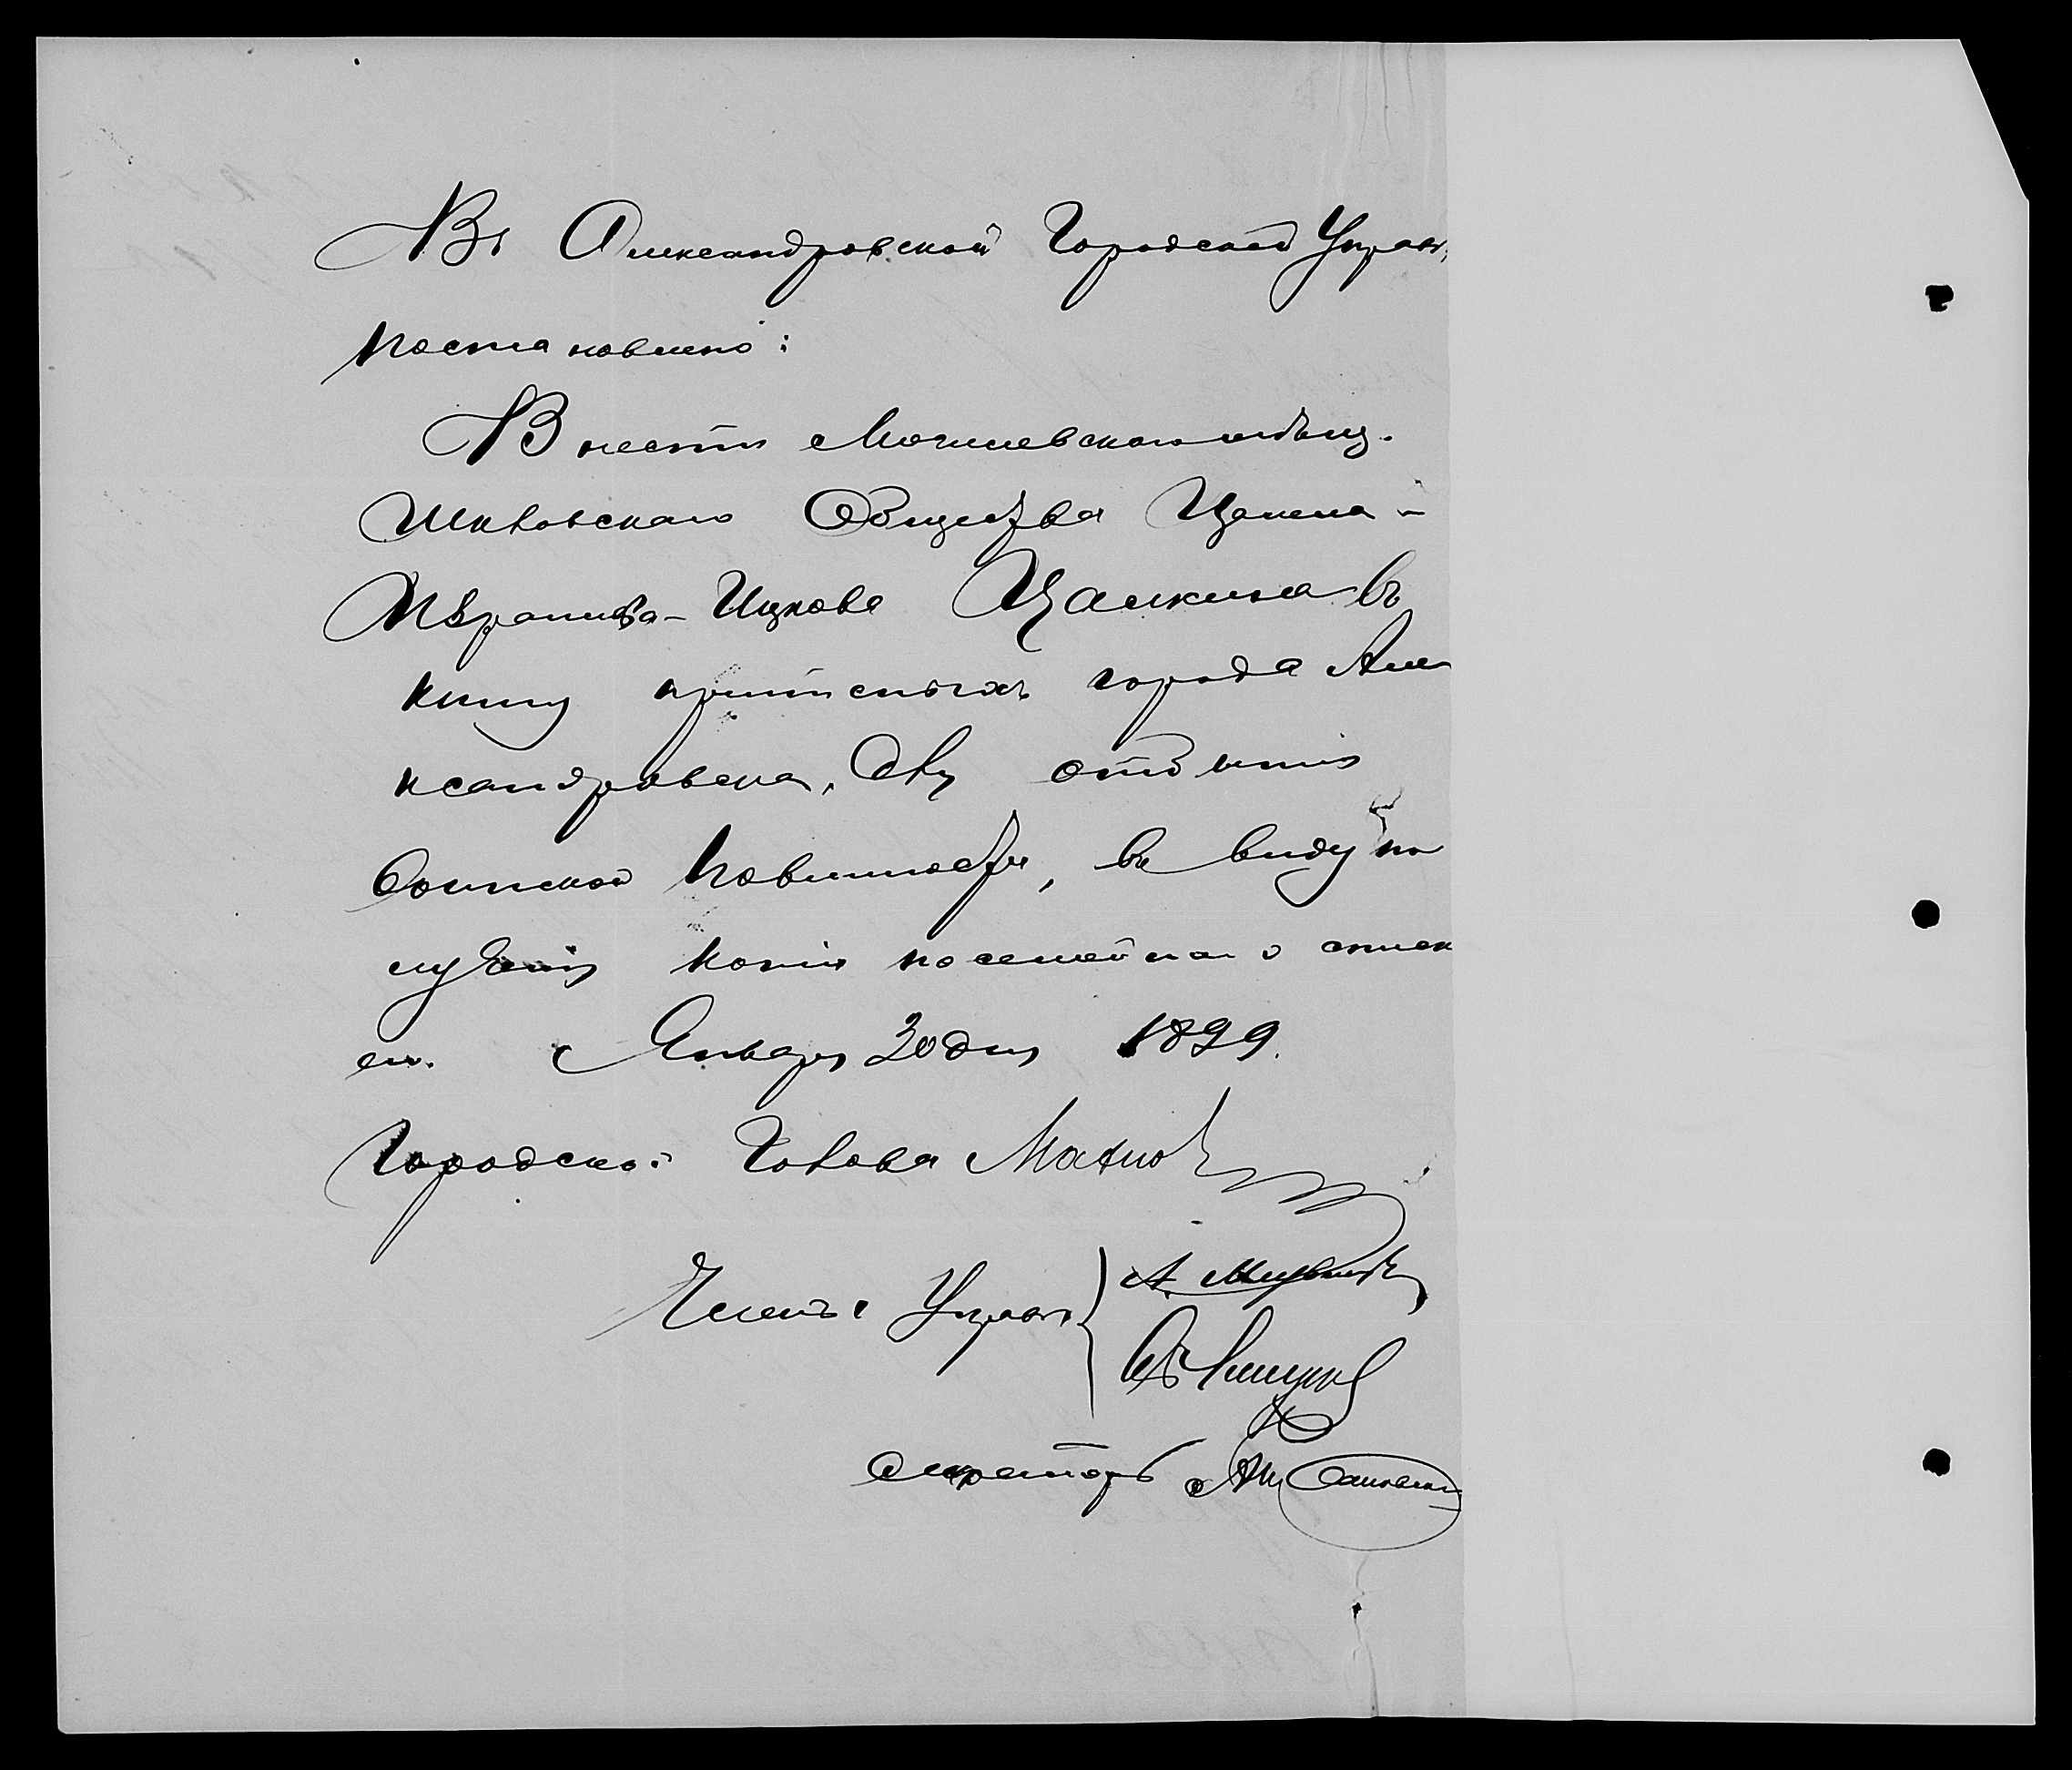 Въ Александровской Городской Управѣ
постановлено:
Внести Могилевскаго мѣщ.
Шкловскаго Общества
Абрамова-Ицкова Цалкина въ
книгу приписныхъ города Але
ксандровска, для отбытія
воинской повинности, въ виду по
лученія копіи посемейнаго списк
его. Января 30 дня 1899.
Городской Голова Махно
Члены Управы { А.
Секретарь